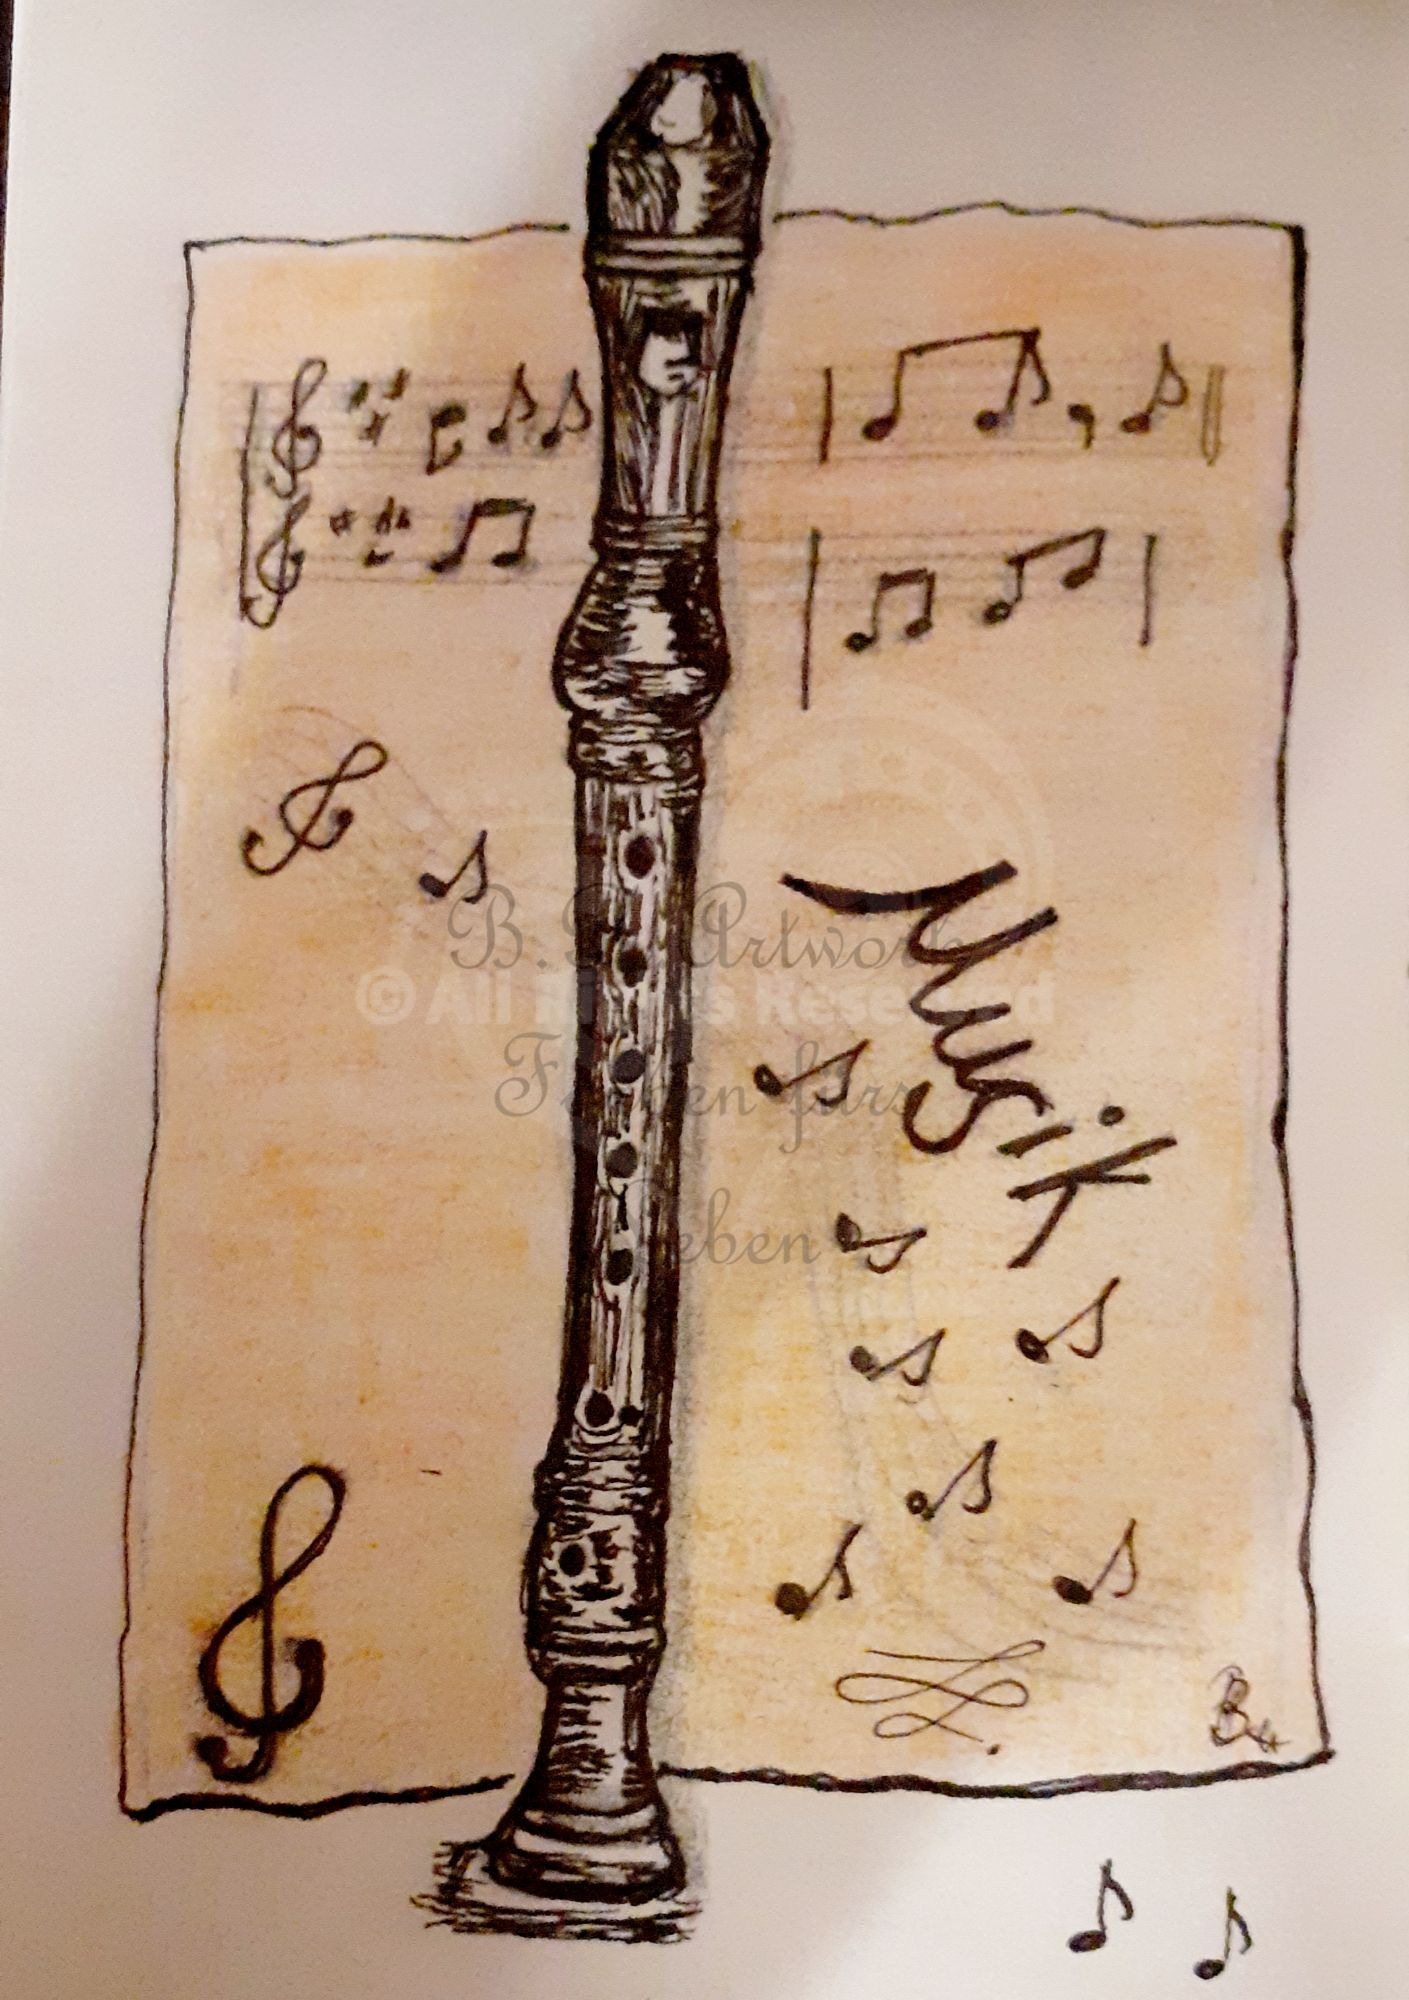 Musik
©All Rights Reserved
Farben fürs
Leben